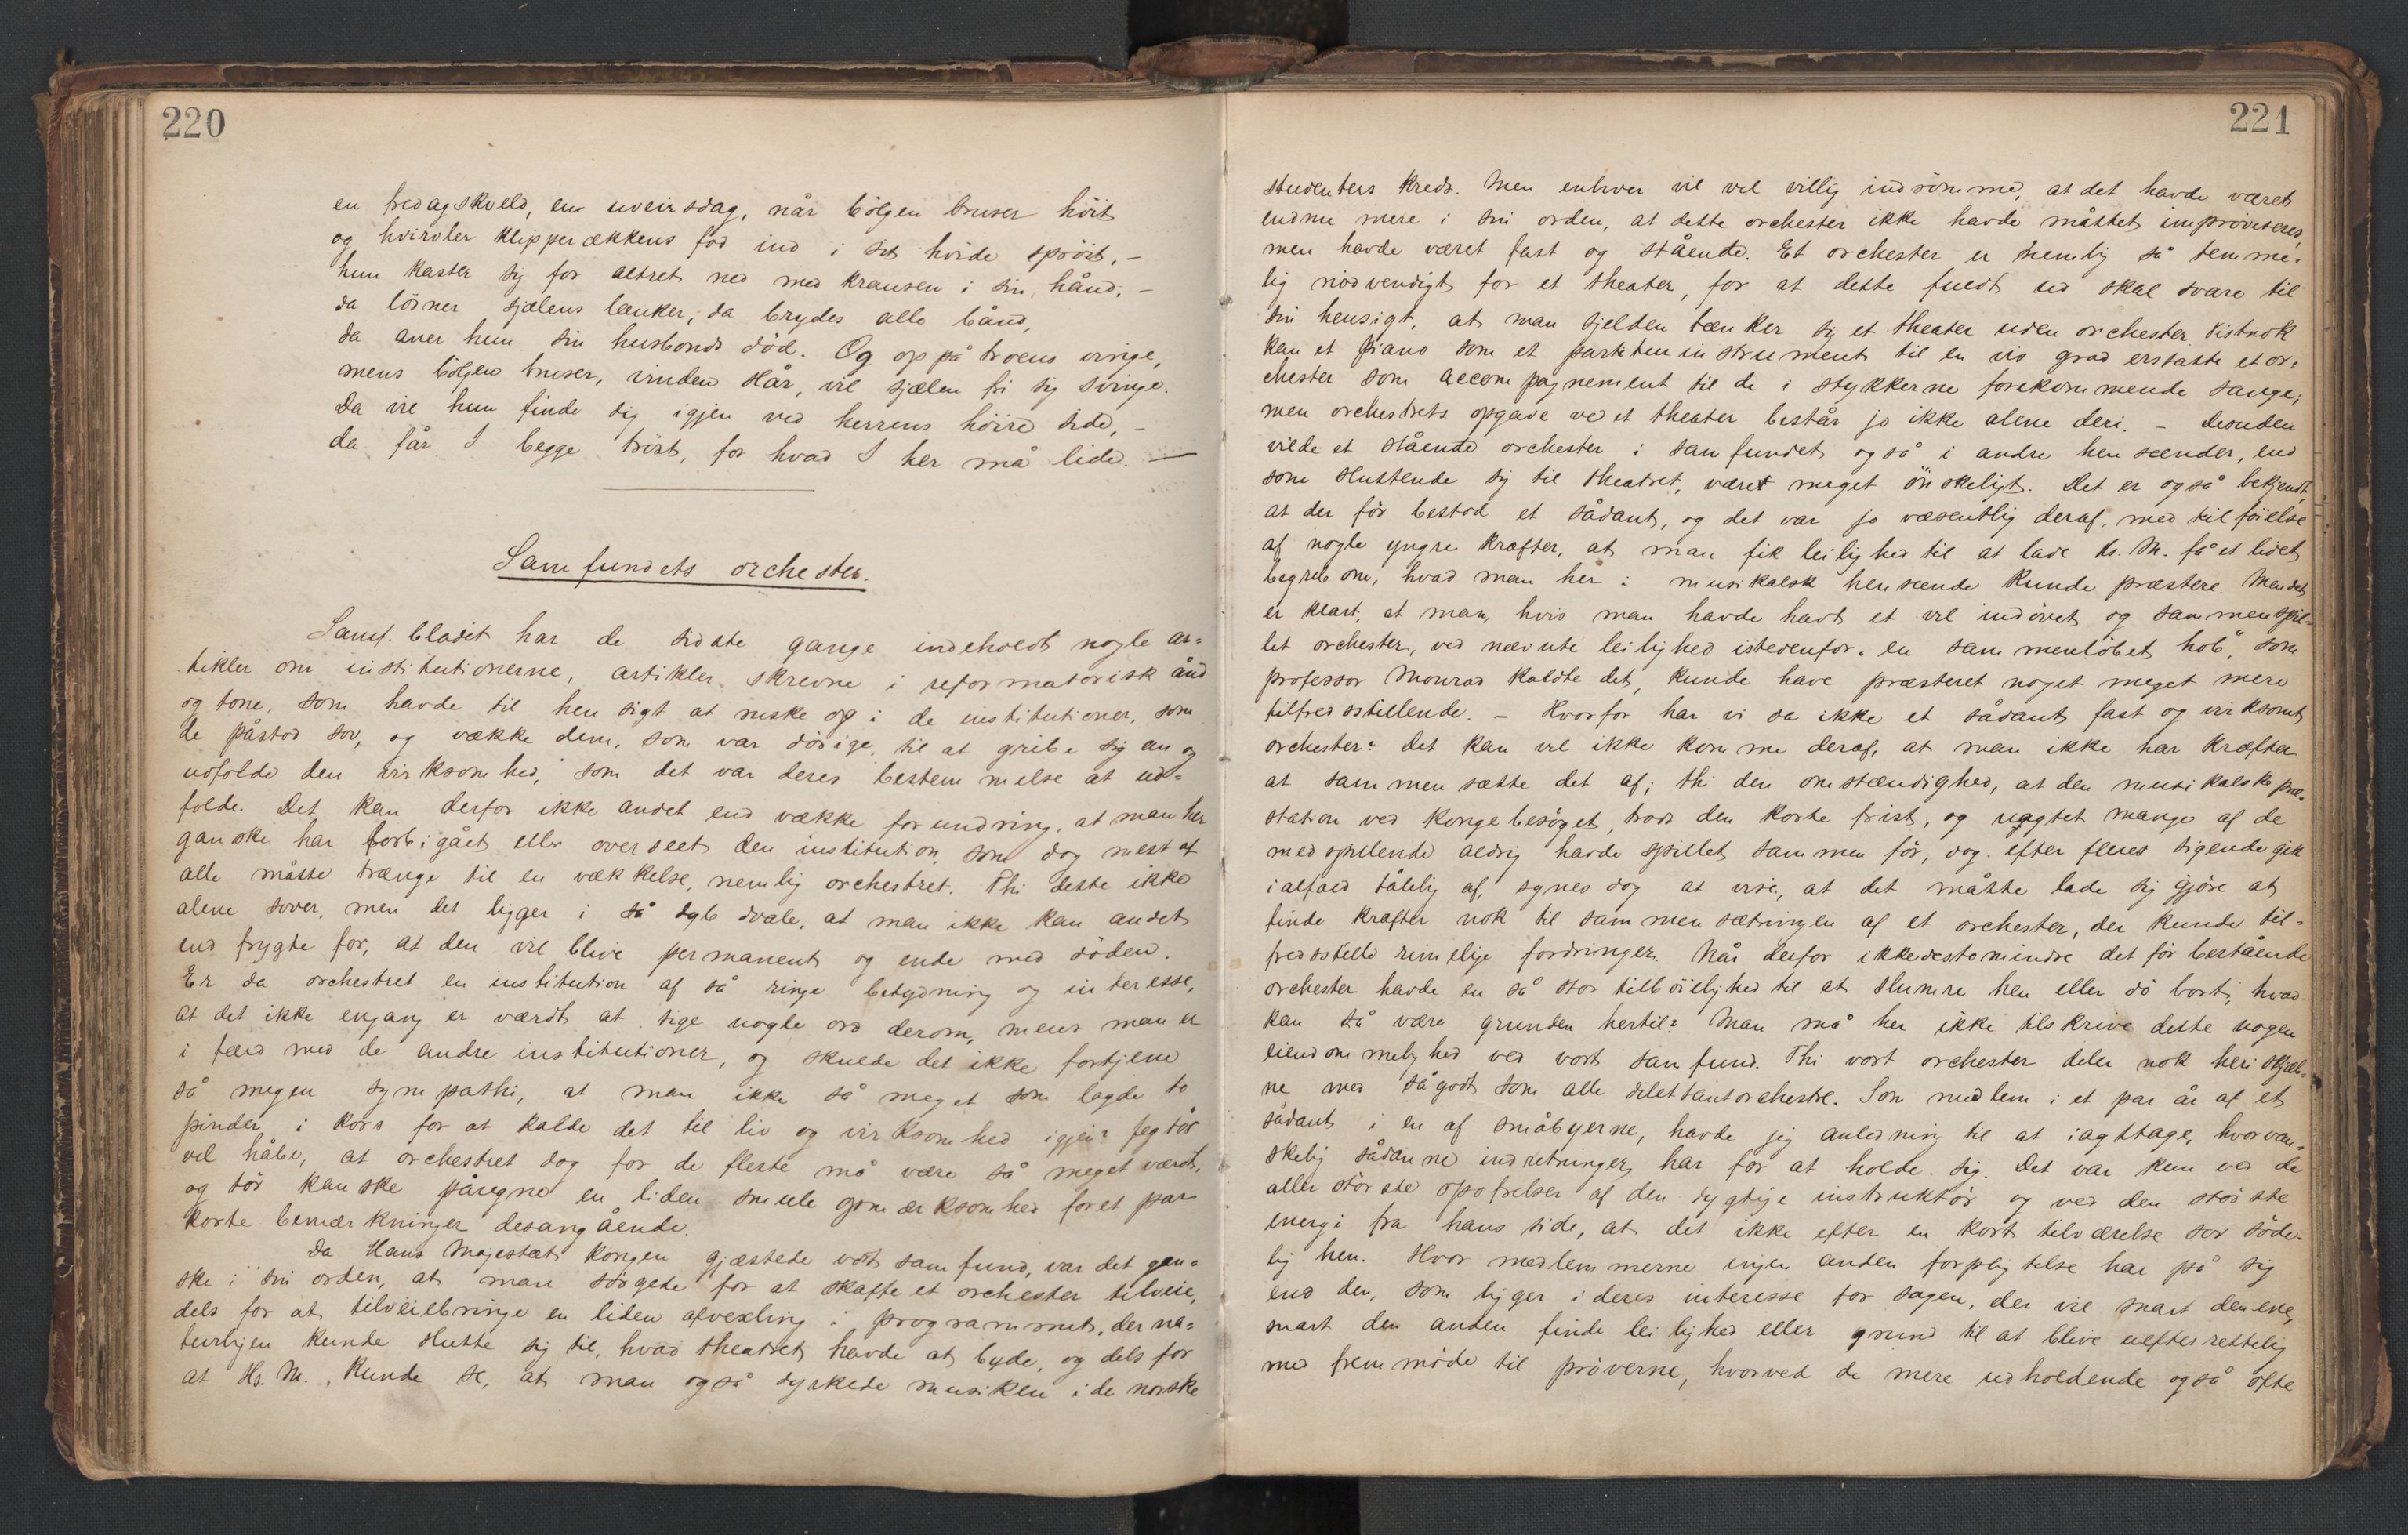 220
en fredagskveld, en uveirsdag, når bölgen bruser höit
og hvirvler klipperækkens fod ind i sit hvide spröit, –
hun kaster sig for altret ned med kransen i sin hånd, –
da lösner sjælens lænker, da brydes alle bånd,
da aner hun sin husbonds död. Og op på troens vinge,
mens bölgen bruser, vinden slår, vil sjælen fri sig svinge.
Da vil hun finde dig igjen ved herrens höire side, –
da får I begge tröst, for hvad I her må lide. —
Samfundets orchester.
Samf. bladet har de sidste gange indeholdt nogle ar=
tikler om institutionerne, artikler skrevne i reformatorisk ånd
og tone, som havde til hensigt at ruske op i de institutioner, som
de påstod sov, og vække dem, som var dösige, til at gribe sig an og
udfolde den virksomhed, som det var deres bestemmelse at ud=
folde. Det kan derfor ikke andet end vække forundring, at man her
ganske har forbigået eller overseet den institution, som dog mest af
alle måtte trænge til en vækkelse, nemlig orchestret. Thi dette ikke
alene sover, men det ligger i så dyb dvale, at man ikke kan andet
end frygte for, at den vil blive permanent og ende med döden.
Er da orchestret en institution af så ringe betydning og interesse,
at det ikke engang er værdt at sige nogle ord derom, mens man er
i færd med de andre institutioner, og skulde det ikke fortjene
så megen sympathi, at man ikke så meget som lagde to
pinder i kors for at kalde det til liv og virksomhed igjen? Jeg tör
vel håbe, at orchestret dog for de fleste må være så meget værdt,
og tör kanske påregne en liden smule opmærksomhed for et par
korte bemærkninger desangående.
Da Hans Majestæt kongen gjæstede vort samfund, var det gan=
ske i sin orden, at man sörgede for at skaffe et orchester tilveie,
dels for at tilveiebringe en liden afvexling i programmet, der na=
turligen kunde slutte sig til, hvad theatret havde at byde, og dels for
at Hs. M. kunde se, at man også dyrkede musiken i de norske
221
studenters kreds. Men enhver vil vel villig indrömme, at det havde været
endnu mere i sin orden, at dette orchester ikke havde måttet improviseres,
men havde været fast og stående. Et orchester er nemlig så temme=
lig nödvendigt for et theater, for at dette fuldt ud skal svare til
sin hensigt, at man sjelden tænker sig et theater uden orchester. Vistnok
kan et piano som et instrument til en vis grad erstatte et or=
chester som accompagnement til de i stykkerne forekommende sange,
men orchestrets opgave ved et theater består jo ikke alene deri. – Desuden
vilde et stående orchester i samfundet også i andre henseender, end
som sluttende sig til theatret, været meget önskeligt. Det er også bekjendt,
at der för bestod et sådant, og det var jo væsentlig deraf, med tilföielse
af nogle yngre kræfter, at man fik leilighed til at lade Hs. M. få et lidet
begreb om, hvad man her i musikalsk henseende kunde præstere. Men det
er klart, at man, hvis man havde havt et vel indövet og sammenspil=
let orchester, ved nævnte leilighed istedenfor „en sammenlöbet hob“, som
professor Monrad kaldte det, kunde have præsteret noget meget mere
tilfredsstillende. – Hvorfor har vi da ikke et sådant fast og virksomt
orchester? Det kan vel ikke komme deraf, at man ikke har kræfter
at sammensætte det af; thi den omstændighed, at den musikalske præ=
station ved kongebesöget, trods den korte frist, og uagtet mange af de
medspillende aldrig havde spillet sammen för, dog efter fleres sigende gik
ialfald tålelig af, synes dog at vise, at det måtte lade sig gjöre at
finde kræfter nok til sammensætningen af et orchester, der kunde til=
fredsstille rimelige fordringer. Når derfor ikkedestomindre det för bestående
orchester havde en så stor tilböielighed til at slumre hen eller dö bort, hvad
kan så være grunden hertil? Man må her ikke tilskrive dette nogen
eiendommelighed ved vort samfund. Thi vort orchester deler nok heri skjæb=
ne med sågodt som alle dilettantorchestre. Som medlem i et par år af et
sådant i en af småbyerne, havde jeg anledning til at iagttage, hvor van=
skelig sådanne indretninger har for at holde sig. Det var kun ved de
aller störste opofrelser af den dygtige instruktör og ved den störste
energi fra hans side, at det ikke efter en kort tilværelse sov söde=
lig hen. Hvor medlemmerne ingen anden forpligtelse har på sig
end den, som ligger i deres interesse for sagen, der vil snart den ene,
snart den anden finde leilighed eller grund til at blive uefterrettelig
med fremmöde til pröverne, hvorved de mere udholdende også ofte